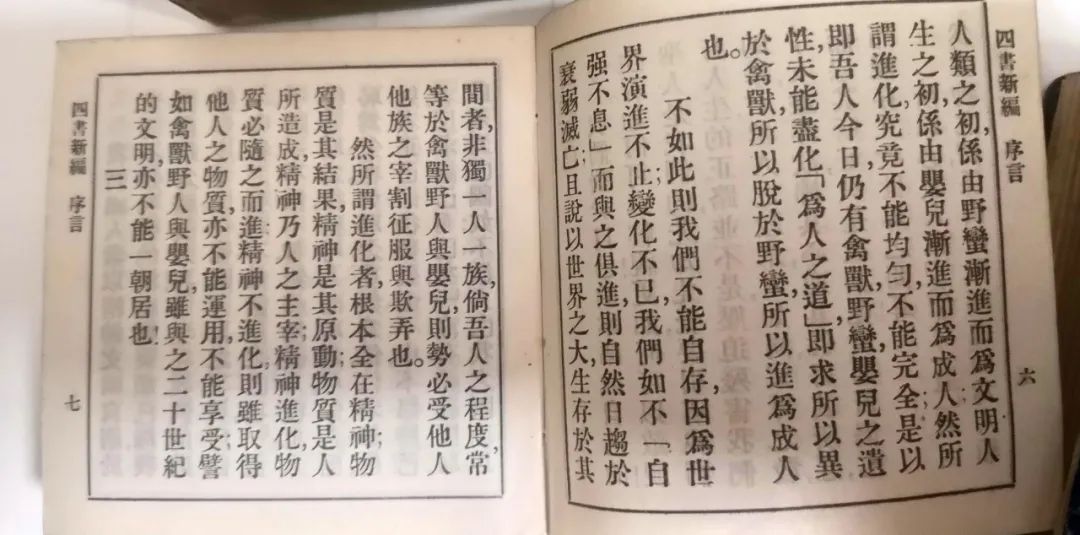 四書新編 序言
六
人類之初,係由野蠻漸進而爲文明人
生之初,係由嬰兒漸進而爲成人;然所
謂進化,究竟不能均勻,不能完全,是以
即吾人今日仍有禽獸,野蠻,嬰兒之遺
性,未能盡化「爲人之道」即求所以異
於禽獸,所以脫於野蠻,所以進爲成人
也。
不如此則我們不能自存,因爲世
界演進不止,變化不已,我們如不「自
强不息」而與之俱進,則自然日趨於
衰弱滅亡;且說以世界之大,生存於其
間者,非獨一人一族,倘吾人之程度,常
等於禽獸野人與嬰兒,則勢必受他人
他族之宰割征服與欺弄也。
然所謂進化者,根本全在精神;物
質是其結果,精神是其原動;物質是人
所造成,精神乃人之主宰;精神進化,物
質必隨之而進;精神不進化,則雖取得
他人之物質,亦不能運用,不能享受;譬
如禽獸野人與嬰兒,雖與之二十世紀
的文明,亦不能一朝居也。
三
四書新編 序言
七